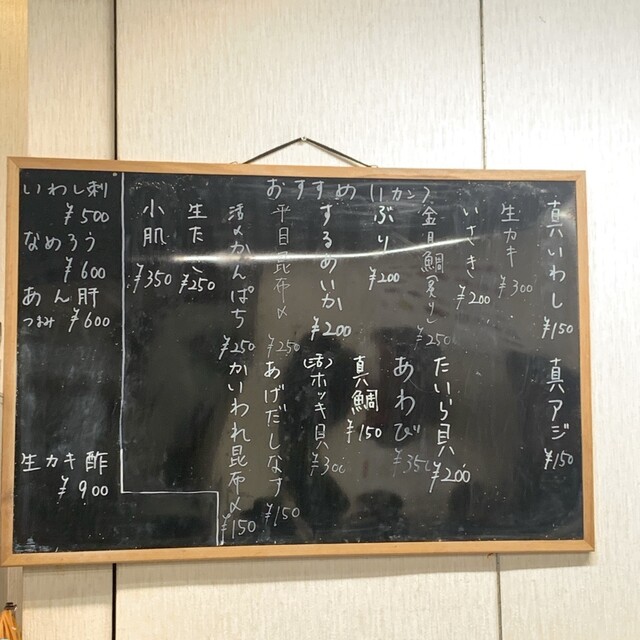 おすすめ(1カン)
真いわし ¥150
真アジ ¥150
生カキ ¥300
いさき ¥200
たいら貝 ¥200
金目鯛(炙り) ¥250
あわび ¥350
ぶり ¥200
真鯛 ¥150
するめいか ¥200
(活)ホッキ貝 ¥300
平目昆布〆 ¥250
あげだしなす ¥150
活〆かんぱち ¥250
かいわれ昆布〆 ¥150
生たこ ¥250
小肌 ¥350
いわし刺
¥500
なめろう
¥600
あん肝
つまみ ¥600
生カキ酢
¥900